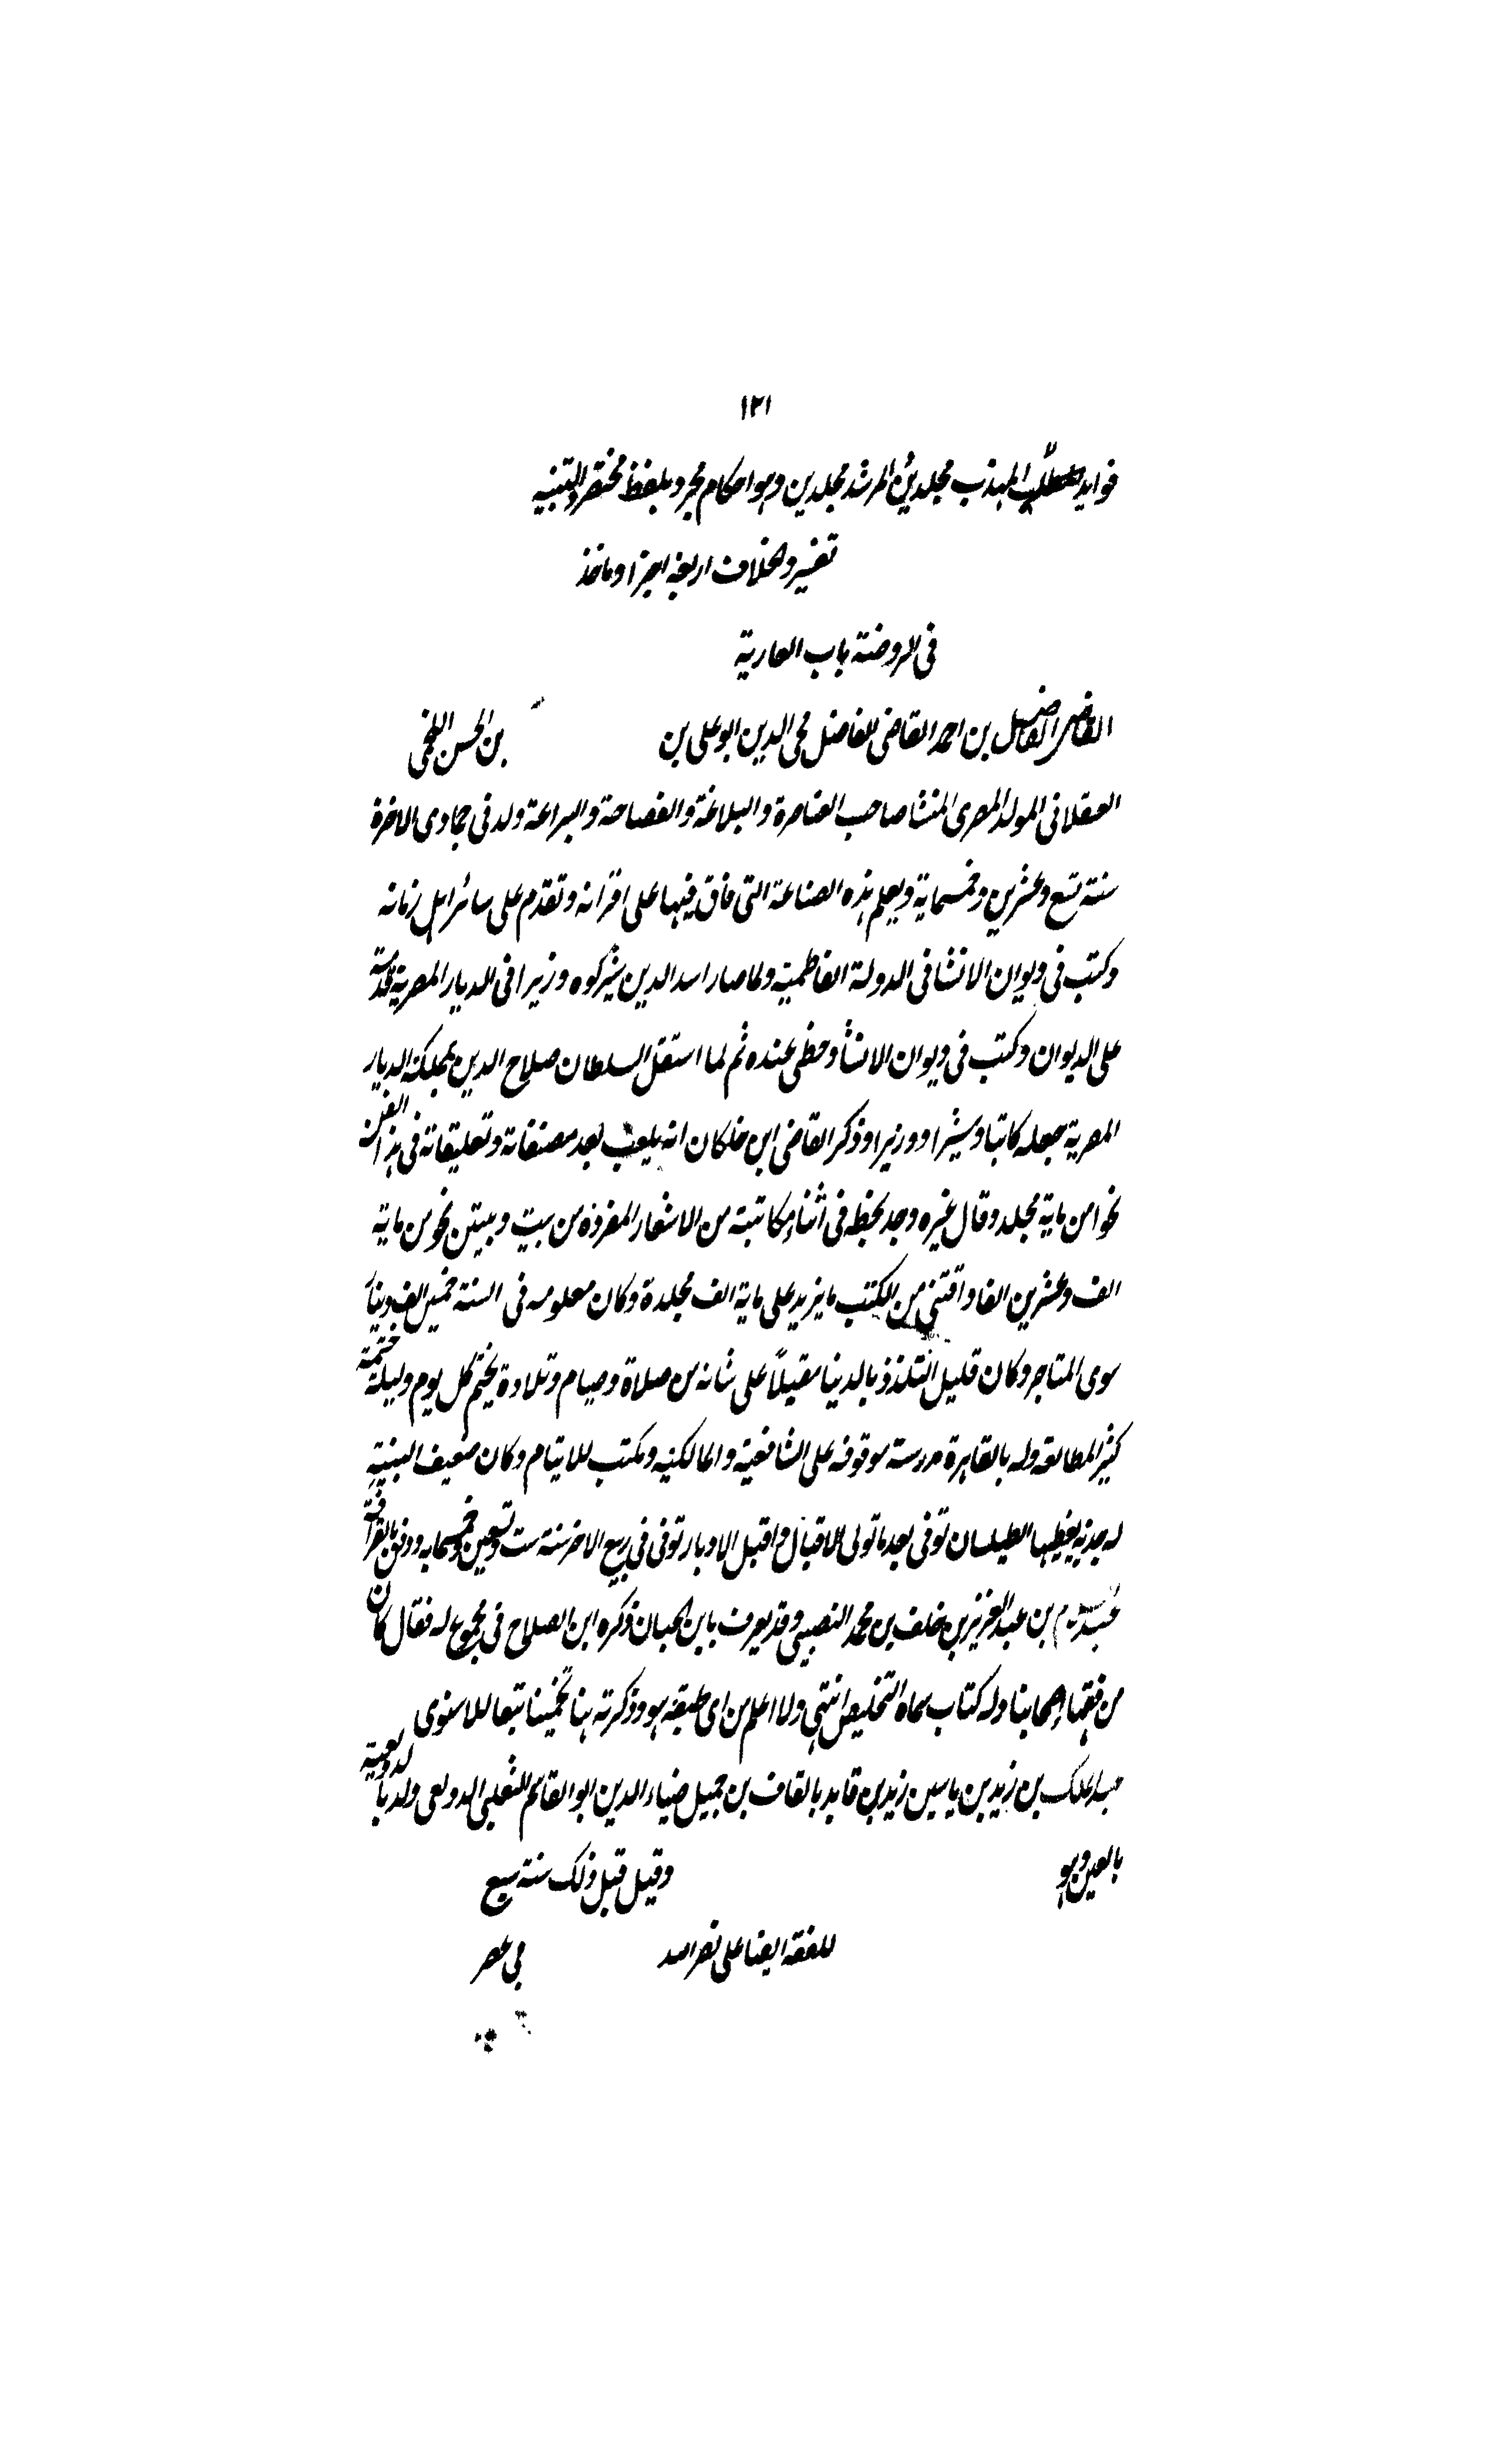 ١٢١
فوايد المهذب مجلدين المرشد مجلدين وهو احكام مجرد بلفظ مختصر والتنبيه
تفسير والخلاف اربعة اجزا وماخذ
فى الروضة باب العارية
القاضى الفاضل بن احمد القاضى الفاضل محى الدين ابو على بن بن الحسن اللخمى
العسقلانى المولد المصرى المنشا صاحب العناصرة والبلاغة والفصاحة والبراعة ولد فى جمادى الاخرة
سنة تسع وعشرين وخمسماية ويعلم هذه الصناعة التى فاق فيها على اقرانه وتقدم على سائر اهل زمانه
وكتب فى ديوان الانشا فى الدولة الفاطمية ولما صار اسد الدين شيركوه وزيرا فى الديار المصرية قدمه
على الديوان وكتب فى ديوان الانشا وحظى عنده ثم لما استقل السلطان صلاح الدين بمملكة الديار
المصرية جعله كاتبا ومشيرا ووزيرا وذكر القاضى ابن خلكان انه بلغت بعد مصنفاته وتعليقاته فى هذا الفن
نحوا من ماية مجلد وقال غيره وجد بخطه فى أثناء مكاتبته من الاشعار المفردة من بيت وبيتين نحو من ماية
الف وعشرين الفا واقتنى من الكتب ما يزيد على ماية الف مجلدة وكان معلومه فى السنة خمسين الف دينار
سوى المتاجر وكان قليل التلذذ بالدنيا مقبلاً على شانه من صلاة وصيام وتلاوة يختم كل يوم وليلة ختمة
كثير المطالعة وله بالقاهرة مدرسة موقوفة على الشافعية والمالكية ومكتب للايتام وكان ضعيف البنية
له حدبة يغطيها الطيلسان توفى بعد ما تولى الاقبال واقبل الادبار توفى فى ربيع الاخر سنة ست وتسعين وخمسمايه ودفن بالقرافة
بن عبد العزيز بن خلف بن محمد النصيبى وقد يعرف بابن الحبان ذكره ابن الصلاح فى مجموع له فقال كان
من فقهاء اصحابنا وله كتاب سماه التخليص انتهى ولا اعلم من اى طبقة هو وذكرته هنا تخمينا تبعا للاسنوى
عبد الملك بن زيد بن ياسين زيد بن قايد بالقاف بن جميل ضياء الدين ابو القاسم الثعلبى الدولعى ولد بالدولعية
بالعين وهو وقيل قبل ذلك سنة سبع
للفقه ايضا على نصر الله بى عصر